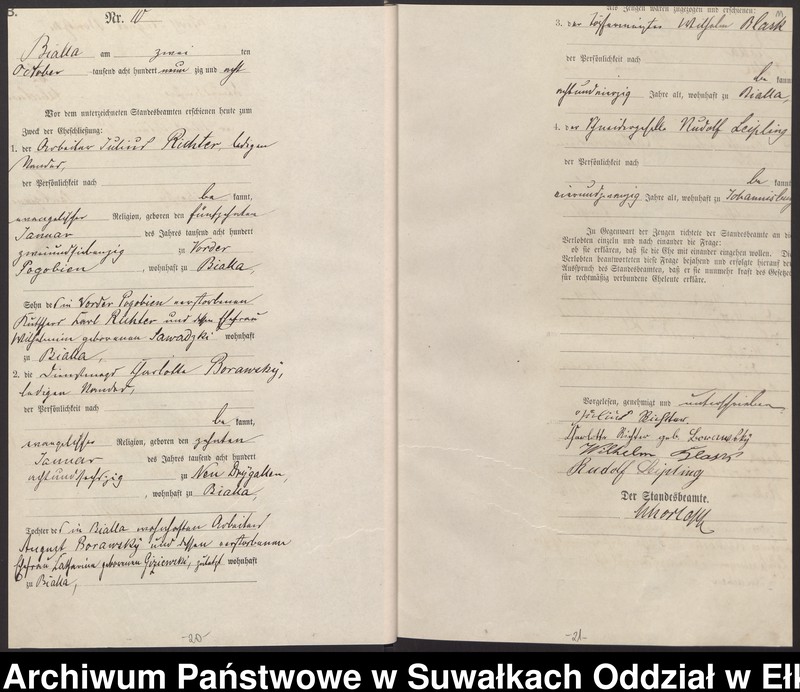 B.
Nr. 10
Bialla am zwei ten
October tausend acht hundert neun zig und acht
Vor dem unterzeichneten Standesbeamten erschienen heute zum
Zweck der Eheschließung:
1. der Arbeiter Julius Richter, ledigen
Standes,
der Persönlichkeit nach
be kannt,
evangelischer Religion, geboren den fünfzehnten
Januar des Jahres tausend acht hundert
zweiundsiebenzig zu Vorder
Pogobien, wohnhaft zu Bialla,
Sohn des in Vorder Pogobien verstorbenen
Karl Richter und dessen Ehefrau
Wilhelmine geborenen Sawadzki wohnhaft
zu Bialla,
2. die Dienstmagd Charlotte Borawsky,
ledigen Standes,
der Persönlichkeit nach
be kannt,
evangelischer Religion, geboren den zehnten
Januar des Jahres tausend acht hundert
achtundsechszig zu Neu Brzyallen,
, wohnhaft zu Bialla,
Tochter des in Bialla wohnhaften Arbeiters
August Borawsky und dessen verstorbenen
Ehefrau Catharina geborenen Gizewski, zuletzt wohnhaft
zu Bialla,
-20-
als Zeugen waren zugezogen und erschienen:
3. der Töpfermeister Wilhelm Klask
der Persönlichkeit nach
be kann
achtundvierzig Jahre alt, wohnhaft zu Bialla,
4. der Schneidergeselle Rudolf Leipling
der Persönlichkeit nach
be kannt
vierundzwanzig Jahre alt, wohnhaft zu Johannisburg
In Gegenwart der Zeugen richtete der Standesbeamte an die
Verlobten einzeln und nach einander die Frage:
ob sie erklären, daß sie die Ehe mit einander eingehen wollen. Die
Verlobten beantworteten diese Frage bejahend und erfolgte hierauf der
Ausspruch des Standesbeamten, daß er sie nunmehr kraft des Gesetzes
für rechtmäßig verbundene Eheleute erkläre.
Vorgelesen, genehmigt und unterschrieben
Julius Richter.
Charlotte Richter geb. Borawsky
Wilhelm Klask
Rudolf Leipling
Der Standesbeamte.
-21-
Archiwum Państwowe w Suwałkach Oddział w Ełk